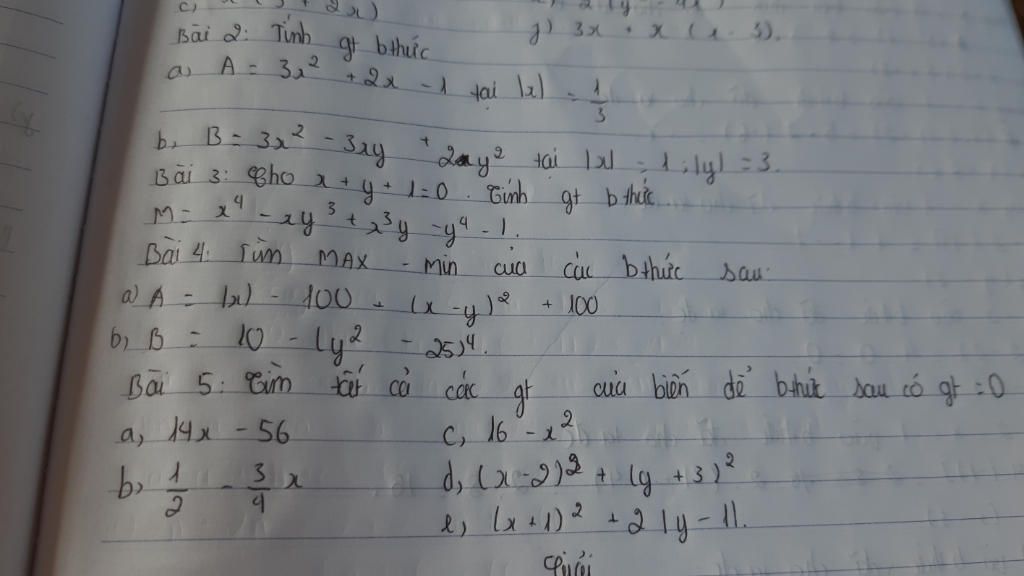 c)
g) 3x + x (x - 3).
Bài 2: Tính gt bthức
a, A = 3x² + 2x - 1 tại |x| = 1/3
b, B = 3x² - 3xy + 2y² tại |x| = 1 ; |y| = 3.
Bài 3: Cho x + y + 1 = 0. Tính gt bthức
M = x⁴ - xy³ + x³y - y⁴ - 1.
Bài 4: Tìm MAX - Min của các bthức sau:
a) A = |x| - 100 + (x - y)² + 100
b, B = 10 - (y² - 25)⁴.
Bài 5: Tìm tất cả các gt của biến để bthức sau có gt = 0
a, 14x - 56
c, 16 - x²
b, 1/2 - 3/4 x
d, (x - 2)² + (y + 3)²
e, (x + 1)² + 2 |y - 1|.
Giải